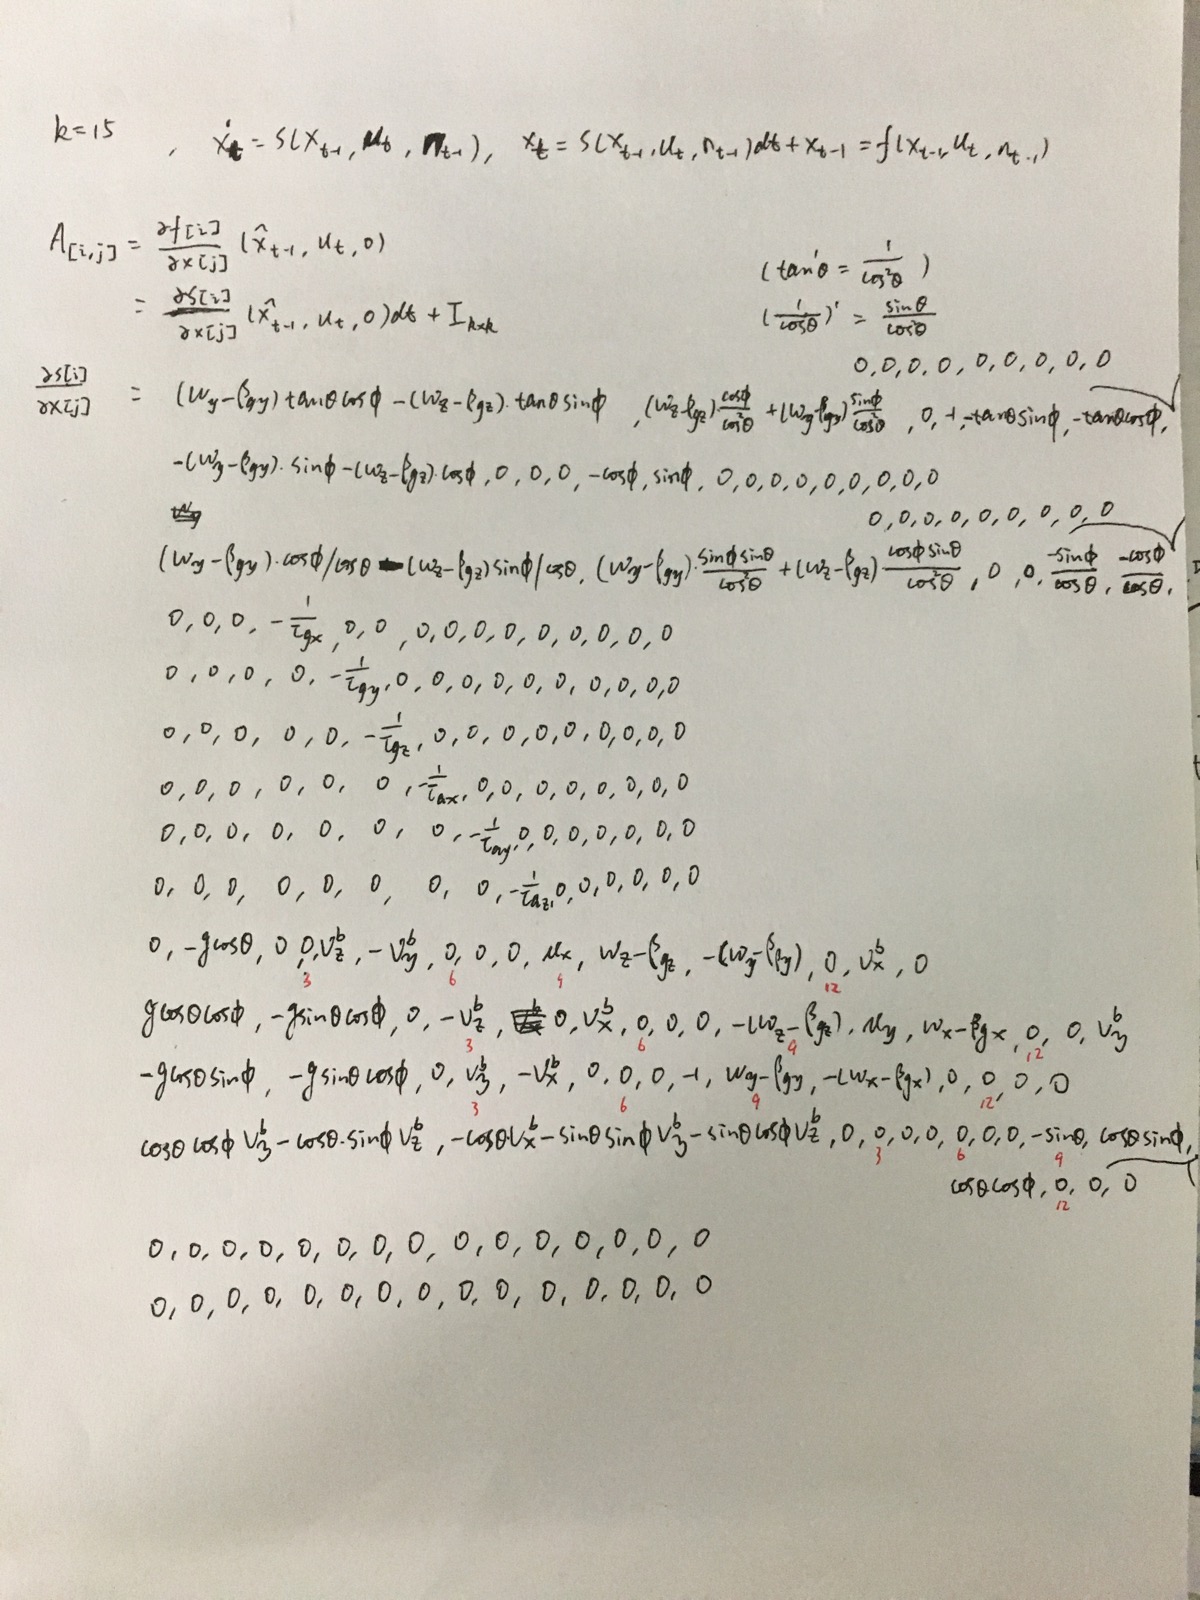 k=15 , ẋ_t = S(x_{t-1}, u_t, n_{t-1}), x_t = S(x_{t-1}, u_t, n_{t-1})dt + x_{t-1} = f(x_{t-1}, u_t, n_{t-1})
A_[i,j] = ∂f[i]/∂x[j] (x̂_{t-1}, u_t, 0)
(tan'θ = 1/cos²θ)
= ∂S[i]/∂x[j] (x̂_{t-1}, u_t, 0)dt + I_{k×k}
(1/cosθ)' = sinθ/cos²θ
0,0,0,0,0,0,0,0,0
∂S[i]/∂x[j] = (w_y-β_gy)tanθcosφ-(w_z-β_gz)·tanθsinφ, (w_z-β_gz)·cosφ/cos²θ+(w_y-β_gy)sinφ/cos²θ, 0, -1, -tanθsinφ, -tanθcosφ,
-(w_y-β_gy)·sinφ-(w_z-β_gz)·cosφ, 0, 0, 0, -cosφ, sinφ, 0,0,0,0,0,0,0,0,0
0,0,0,0,0,0,0,0,0
(w_y-β_gy)·cosφ/cosθ-(w_z-β_gz)sinφ/cosθ, (w_y-β_gy)·sinφsinθ/cos²θ+(w_z-β_gz)·cosφsinθ/cos²θ, 0, 0, -sinφ/cosθ, -cosφ/cosθ,
0, 0, 0, -1/τ_gx, 0, 0, 0,0,0,0,0,0,0,0,0
0, 0, 0, 0, -1/τ_gy, 0, 0,0,0,0,0,0,0,0,0
0, 0, 0, 0, 0, -1/τ_gz, 0,0,0,0,0,0,0,0,0
0, 0, 0, 0, 0, 0, -1/τ_ax, 0,0,0,0,0,0,0,0
0, 0, 0, 0, 0, 0, 0, -1/τ_ay, 0,0,0,0,0,0,0
0, 0, 0, 0, 0, 0, 0, 0, -1/τ_az, 0,0,0,0,0,0
0, -gcosθ, 0, 0, v_z^b, -v_y^b, 0, 0, 0, μ_x, w_z-β_gz, -(w_y-β_gy), 0, v_x^b, 0
3 6 9 12
gcosθcosφ, -gsinθcosφ, 0, -v_z^b, 0, v_x^b, 0, 0, 0, -(w_z-β_gz), μ_y, w_x-β_gx, 0, 0, v_y^b
3 6 9 12
-gcosθsinφ, -gsinθcosφ, 0, v_y^b, -v_x^b, 0, 0, 0, -1, w_y-β_gy, -(w_x-β_gx), 0, 0, 0, 0
3 6 9 12
cosθcosφv_y^b-cosθ·sinφv_z^b, -cosθv_x^b-sinθsinφv_y^b-sinθcosφv_z^b, 0, 0, 0, 0, 0, 0, 0, -sinθ, cosθsinφ,
3 6 9
cosθcosφ, 0, 0, 0
12
0, 0, 0, 0, 0, 0, 0, 0, 0, 0, 0, 0, 0, 0, 0
0, 0, 0, 0, 0, 0, 0, 0, 0, 0, 0, 0, 0, 0, 0